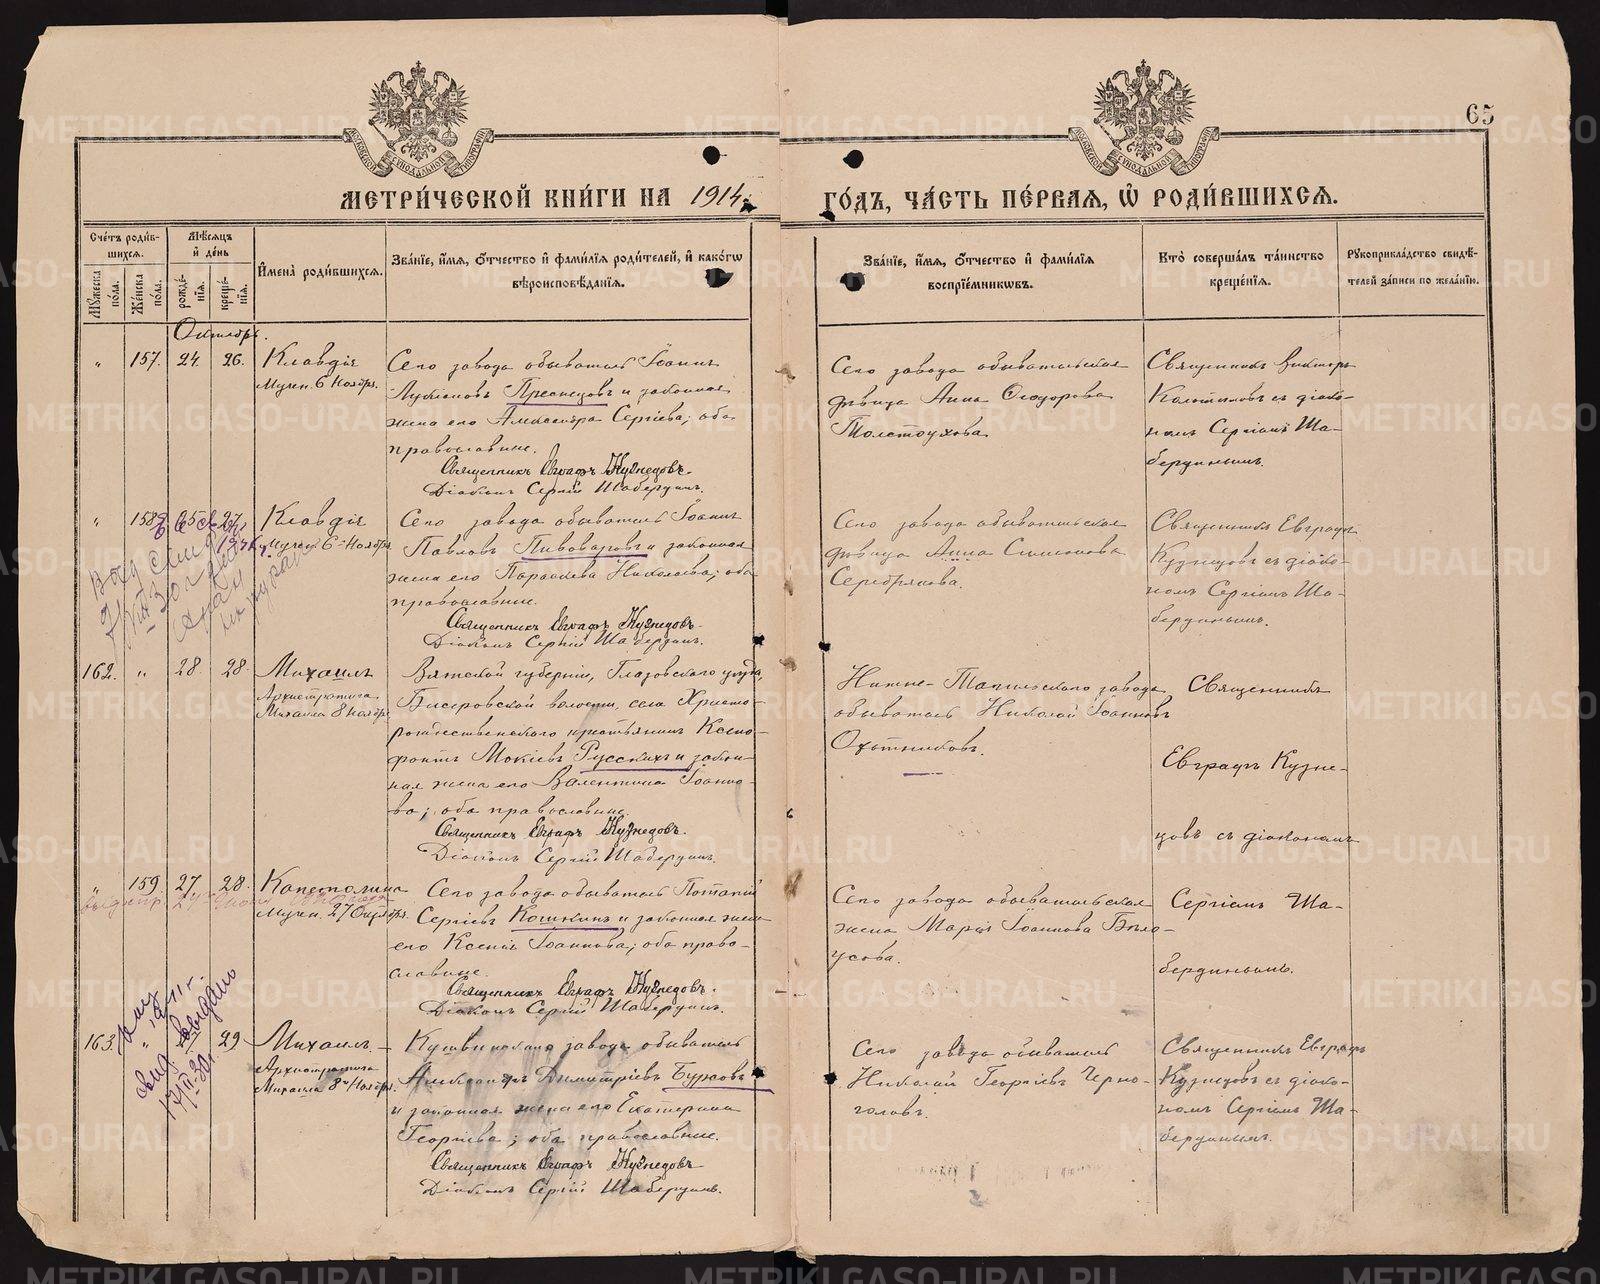 65
МЕТРИ́ЧЕСКОЙ КНИ́ГИ НА 1914
ГО́ДЪ, ЧА́СТЬ ПЕ́РВАЯ, Ѡ РОДИ́ВШИХСЯ.
Сче́тъ роди́в-
шихся.
Мѣ́сяцъ
и҆ де́нь
Мꙋжеска по́ла.
Же́нска по́ла.
рожде́-
нїѧ.
креще́-
нїѧ.
И҆мена̀ роди́вшихсѧ.
Зва́нїе, и҆́мѧ, ѻ҆́тчество и҆ фами́лїѧ роди́телей, и҆ како́гѡ
вѣроисповѣ́данїѧ.
Зва́нїе, и҆́мѧ, ѻ҆́тчество и҆ фами́лїѧ
воспрїе́мникѡвъ.
Кто̀ соверша́лъ та́инство
креще́нїѧ.
Рꙋкоприкла́дство свидѣ́-
телей за́писи по жела́нїю.
Октябрь.
" 157. 24. 26. Клавдія
Мучен. 6 Ноября.
Сего завода обыватель Іоаннъ
Лукіановъ Преснецовъ и законная
жена его Александра Сергіева; оба
православные.
Священникъ Евграфъ Кузнецовъ.
Діаконъ Сергій Шабердинъ.
Сего завода обывательская
дѣвица Анна Сидорова
Толстоухова
Священникъ Викторъ
съ діако-
номъ Сергіемъ Ша-
бердинымъ.
" 158 25 27 Клавдія
Мучен. 6 Ноября
Сего завода обыватель Іоаннъ
Павловъ Пивоваровъ и законная
жена его Параскева Николаева; оба
православные.
Священникъ Евграфъ Кузнецовъ.
Діаконъ Сергій Шабердинъ.
Сего завода обывательская
дѣвица Анна Симонова
Серебрякова.
Священникъ Евграфъ
Кузнецовъ съ діако-
номъ Сергіемъ Ша-
бердинымъ.
162. " 28. 28. Михаилъ
Архистратига
Михаила 8 Ноября
Вятской губерніи, Глазовскаго уѣзда,
Бисеровской волости, села Христо-
рождественскаго крестьянинъ Ксено-
фонтъ Мокіевъ Русскихъ и закон-
ная жена его Валентина Іоанно-
ва; оба православные
Священникъ Евграфъ Кузнецовъ.
Діаконъ Сергій Шабердинъ.
Нижне-Тагильскаго завода
обыватель Николай Іоанновъ
Охотниковъ.
Священникъ
Евграфъ Кузне-
цовъ съ діакономъ
" 159. 27. 28. Капетолина
Мучен. 27 Октября.
Сего завода обыватель Потапій
Сергіевъ Кошкинъ и законная жена
его Ксенія Іоаннова; оба право-
славные.
Священникъ Евграфъ Кузнецовъ.
Діаконъ Сергій Шабердинъ.
Сего завода обывательская
жена Марія Іоаннова Бѣло-
усова.
Сергіемъ Ша-
бердинымъ.
163. " 29 Михаилъ.
Архистратига
Михаила 8 Ноября.
Кушвинскаго завода обыватель
Александръ Димитріевъ Бурковъ
и законная жена его Екатерина
Георгіева; оба православные.
Священникъ Евграфъ Кузнецовъ
Діаконъ Сергій Шабердинъ.
Сего завода обыватель
Николай Георгіевъ Черно-
головъ.
Священникъ Евграфъ
Кузнецовъ съ діако-
номъ Сергіемъ Ша-
бердинымъ.
METRIKI.GASO-URAL.RU